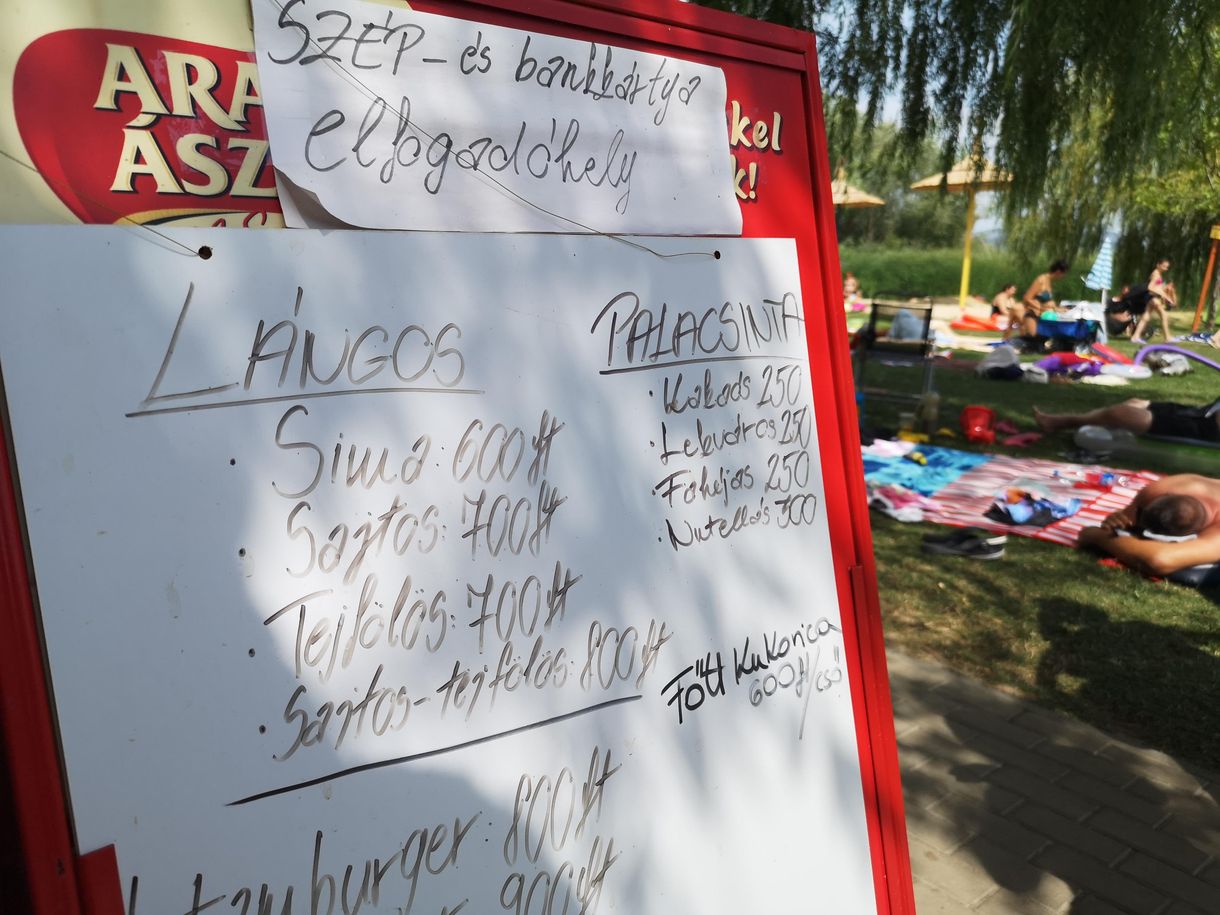 ARA
ÁSZ
kel
k!
SZÉP- és bankkártya
elfogadóhely
LÁNGOS
Sima: 600 ft
Sajtos: 700 ft
Tejfölös: 700 ft
Sajtos-tejfölös: 800 ft
PALACSINTA
Kakaós 250
Lekváros 250
Fahéjas 250
Nutellás 300
Főtt Kukorica
600 ft/cső
Hamburger: 800 ft
900 ft